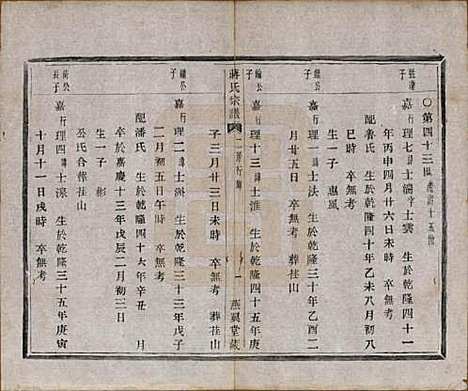 〇第四十三世
嘉行理七諱士濡字士雲 生於乾隆四十一
年丙申四月廿六日未時 卒無考
配魯氏 生於乾隆四十年乙未八月初八
日 卒無考
生一子 惠風
鎧公
子
嘉行理一諱士法 生於乾隆三十年乙酉二
月廿五日 卒無考 葬挂山
公
子
嘉行理十三諱士淮 生於乾隆四十五年庚
子三月廿三日未時 卒無考 葬挂山
蔣氏宗譜
一
燕翼堂
公
子
嘉行理二諱士洲 生於乾隆三十三年戊子
二月初五日午時 卒無考
配潘氏 生於乾隆四十六年辛丑 月
卒於嘉慶十三年戊辰二月初三日
生一子 彬
公氏合葬挂山
公
長子
嘉行理四諱士淥 生於乾隆三十五年庚寅
十月十一日戌時 卒無考